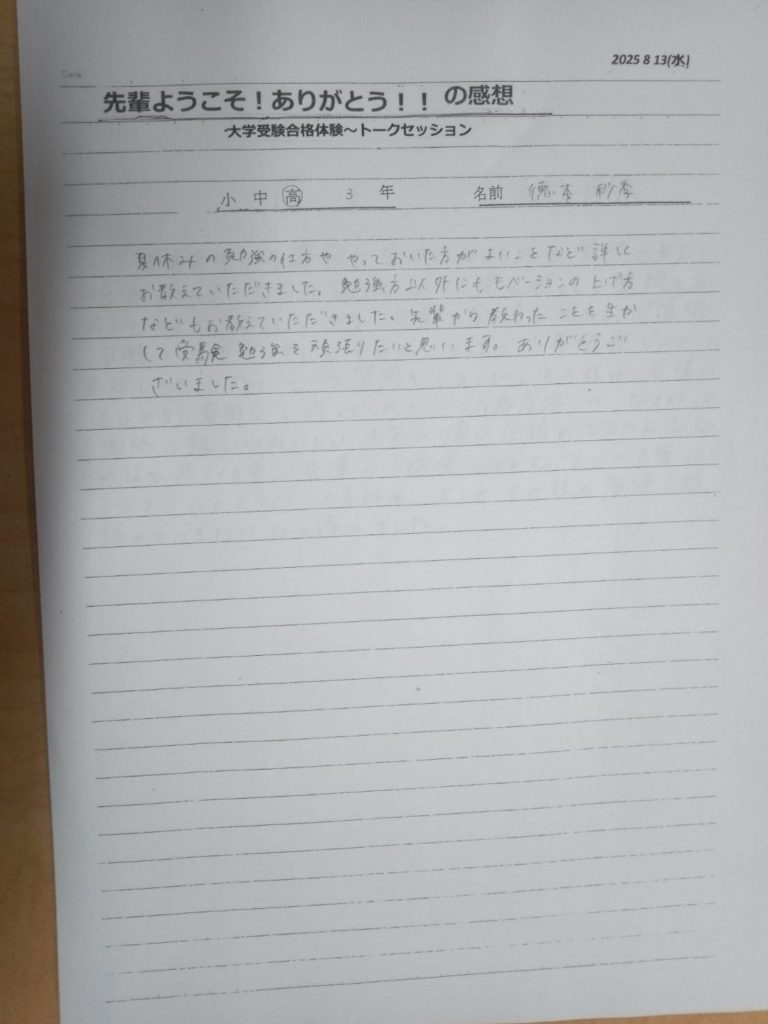 2025 8 13(水)
Date
先輩ようこそ！ありがとう！！ の感想
大学受験合格体験～トークセッション
小 中 高 3 年 名前 徳本 紗季
夏休みの勉強の仕方や やっておいた方がよいことなど詳しく
お教えていただきました。勉強方以外にもモベーションの上げ方
などもお教えていただきました。先輩から教わったことを生か
して受験勉強を頑張りたいと思います。ありがとうご
ざいました。